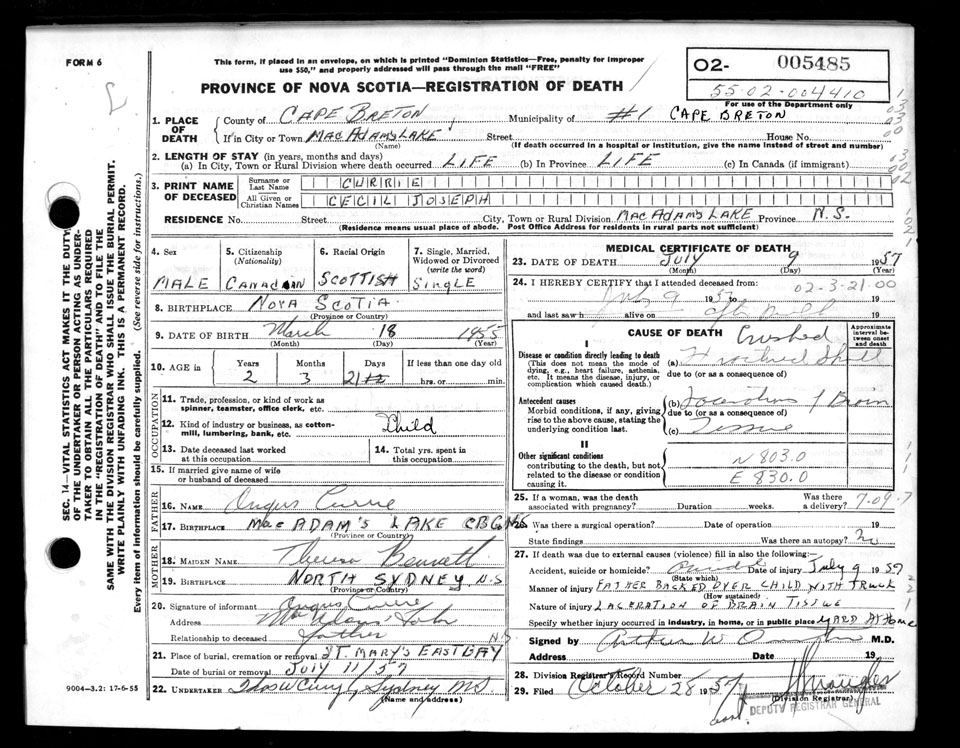 FORM 6
This form, if placed in an envelope, on which is printed "Dominion Statistics—Free, penalty for improper
use $50," and properly addressed will pass through the mail "FREE"
PROVINCE OF NOVA SCOTIA—REGISTRATION OF DEATH
O2- 005485
55-02-004410
For use of the Department only
1. PLACE OF DEATH
County of CAPE BRETON Municipality of #1 CAPE BRETON
If in City or Town MACADAMS LAKE Street House No.
(Name) (If death occurred in a hospital or institution, give the name instead of street and number)
2. LENGTH OF STAY (in years, months and days)
(a) In City, Town or Rural Division where death occurred LIFE (b) In Province LIFE (c) In Canada (if immigrant)
3. PRINT NAME OF DECEASED
Surname or Last Name CURRIE
All Given or Christian Names CECIL JOSEPH
RESIDENCE No. Street City, Town or Rural Division MACADAMS LAKE Province N.S.
(Residence means usual place of abode. Post Office Address for residents in rural parts not sufficient)
4. Sex MALE
5. Citizenship (Nationality) CANADIAN
6. Racial Origin SCOTTISH
7. Single, Married, Widowed or Divorced (write the word) SINGLE
8. BIRTHPLACE NOVA SCOTIA
(Province or Country)
9. DATE OF BIRTH March 18 1955
(Month) (Day) (Year)
10. AGE in Years Months Days If less than one day old
2 3 21 hrs. or min.
OCCUPATION
11. Trade, profession, or kind of work as spinner, teamster, office clerk, etc.
12. Kind of industry or business, as cotton-mill, lumbering, bank, etc. Child
13. Date deceased last worked at this occupation
14. Total yrs. spent in this occupation
15. If married give name of wife or husband of deceased
FATHER
16. NAME Angus Currie
17. BIRTHPLACE MacADAM'S LAKE CBG NS
(Province or Country)
MOTHER
18. MAIDEN NAME Theresa Bennett
19. BIRTHPLACE NORTH SYDNEY N.S
(Province or Country)
20. Signature of informant Angus Currie
Address
Relationship to deceased father N.S.
21. Place of burial, cremation or removal ST. MARY'S EAST BAY
Date of burial or removal July 11/57
22. UNDERTAKER Sydney NS
(Name and address)
9004-3.2: 17-6-55
MEDICAL CERTIFICATE OF DEATH
23. DATE OF DEATH July 9 1957
(Month) (Day) (Year)
24. I HEREBY CERTIFY that I attended deceased from 02-3-21-00
July 9 1957 to 19
and last saw h alive on 19
CAUSE OF DEATH
Approximate interval between onset and death
I
Disease or condition directly leading to death
(This does not mean the mode of dying, e.g., heart failure, asthenia, etc. It means the disease, injury, or complication which caused death.)
Crushed
(a) Fractured Skull
due to (or as a consequence of)
Antecedent causes
Morbid conditions, if any, giving rise to the above cause, stating the underlying condition last.
(b) Laceration of Brain
due to (or as a consequence of)
(c) Tissue
II
Other significant conditions
contributing to the death, but not related to the disease or condition causing it.
N 803.0
E 830.0
25. If a woman, was the death associated with pregnancy? Duration weeks. Was there a delivery? 7-09-7
26. Was there a surgical operation? Date of operation 19
State findings Was there an autopsy? No
27. If death was due to external causes (violence) fill in also the following:—
Accident, suicide or homicide? Date of injury July 9 1957
(State which)
Manner of injury FATHER BACKED OVER CHILD WITH TRUCK
(How sustained)
Nature of injury LACERATION OF BRAIN TISSUE
Specify whether injury occurred in industry, in home, or in public place YARD AT HOME
Signed by M.D.
Address Date 19
28. Division Registrar's Record Number
29. Filed October 28 1957
(Division Registrar)
DEPUTY REGISTRAR GENERAL
SEC. 14—VITAL STATISTICS ACT MAKES IT THE DUTY
OF THE UNDERTAKER OR PERSON ACTING AS UNDER-
TAKER TO OBTAIN ALL THE PARTICULARS REQUIRED
IN THE "REGISTRATION OF DEATH" AND TO FILE THE
SAME WITH THE DIVISION REGISTRAR WHO SHALL ISSUE THE BURIAL PERMIT.
WRITE PLAINLY WITH UNFADING INK. THIS IS A PERMANENT RECORD.
Every item of information should be carefully supplied. (See reverse side for instructions.)